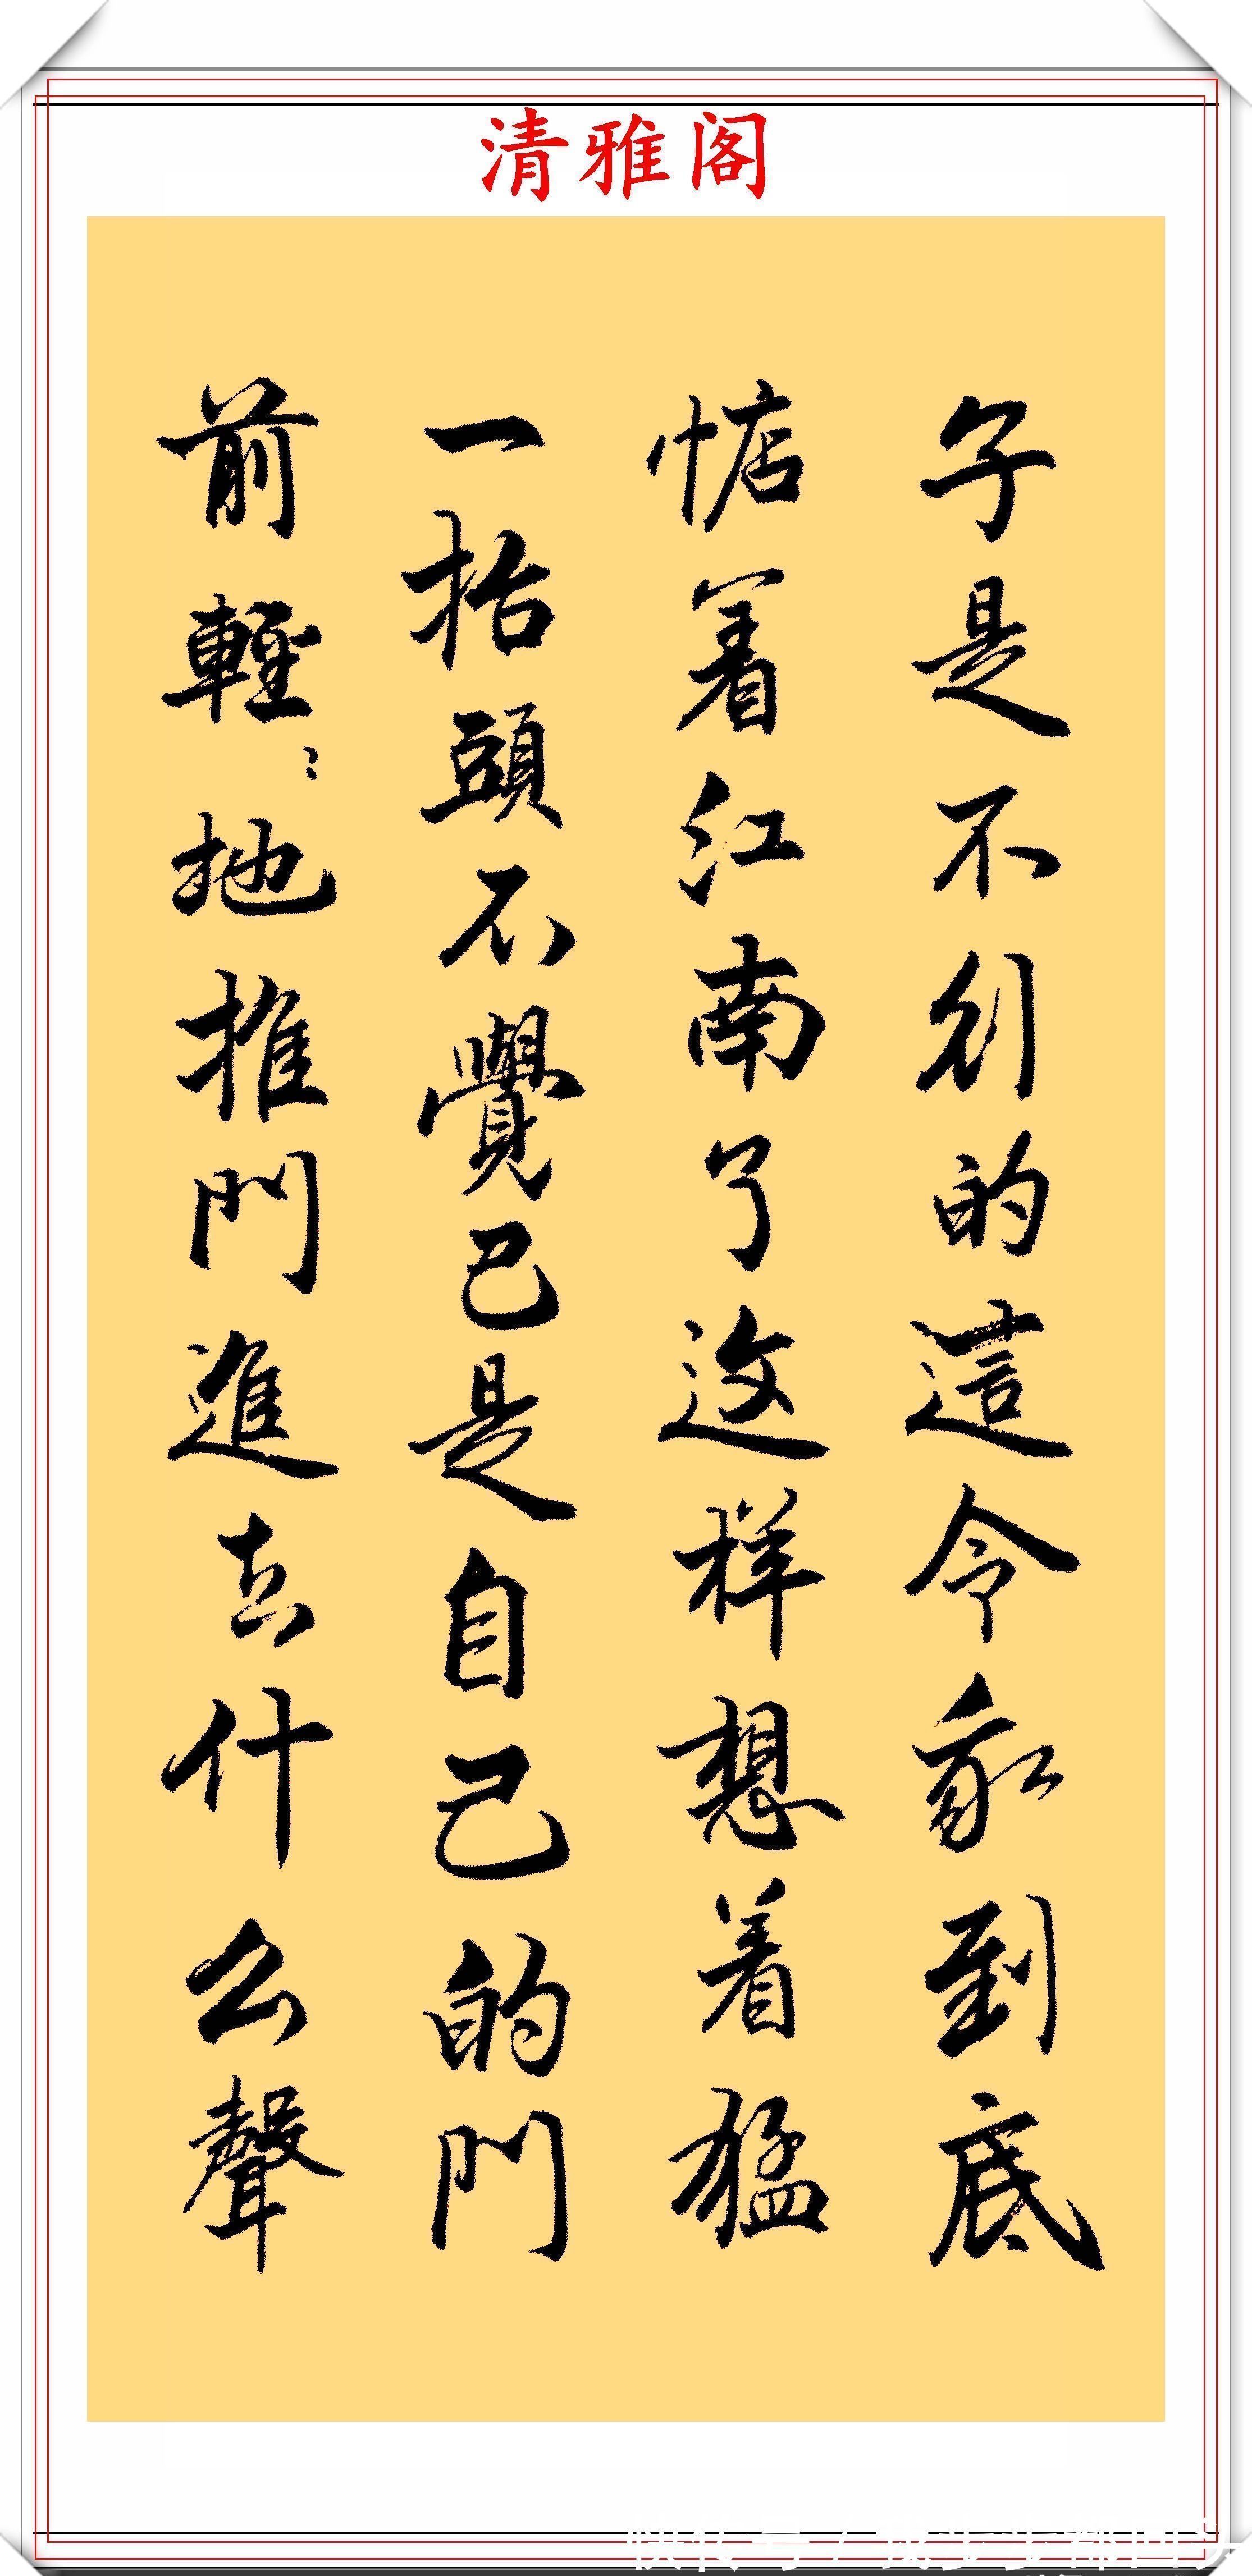 清雅阁
子是不行的這令我到底
惦着江南了这样想着猛
一抬頭不覺已是自己的門
前輕〻地推門進去什么聲